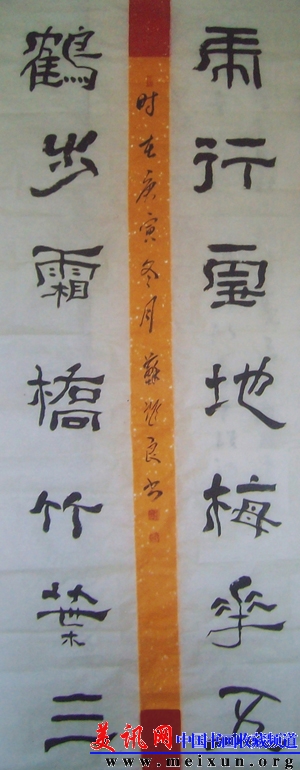 虎行雪地梅花五
时在庚寅冬月 蘇良书
鶴步霜橋竹葉三
美讯网 中国书画收藏频道
www.meixun.org